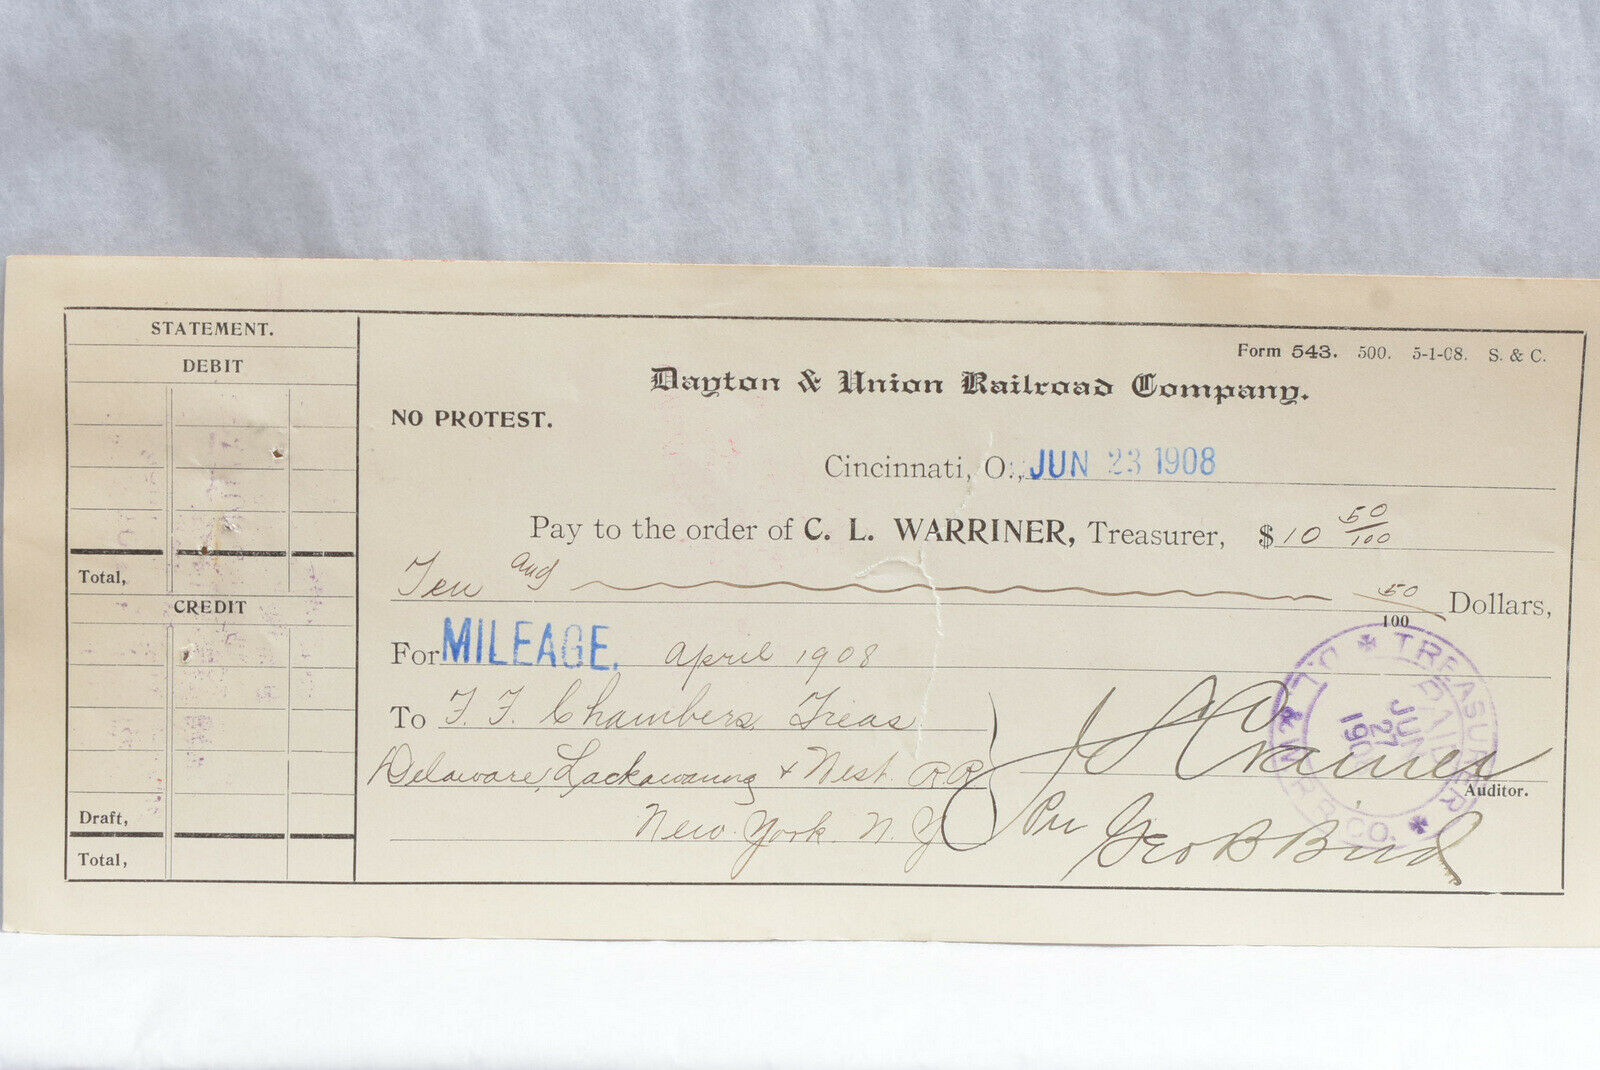 STATEMENT.
DEBIT
Total,
CREDIT
Draft,
Total,
Form 543. 500. 5-1-08. S. & C.
Dayton & Union Railroad Company.
NO PROTEST.
Cincinnati, O., JUN 23 1908
Pay to the order of C. L. WARRINER, Treasurer, $10 50/100
Ten and 50/100 Dollars,
For MILEAGE. April 1908
To F. F. Chambers Treas
Delaware, Lackawanna & West. RR
New York. N. Y
Auditor.
Per Geo B Bird
TREASURER
JUN
27
190
R.R. CO.